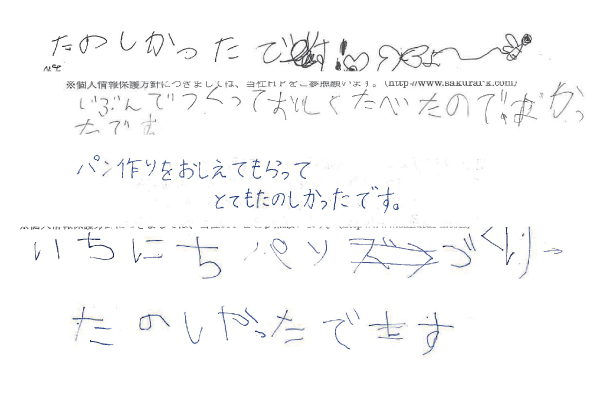 たのしかったです!♡
※個人情報保護方針につきましては、当社HPをご参照願います。(http://www.sakurark.com/
じぶんでつくって
たです
パン作りをおしえてもらって
とてもたのしかったです。
いちにち パン づくり
たのしかったできす